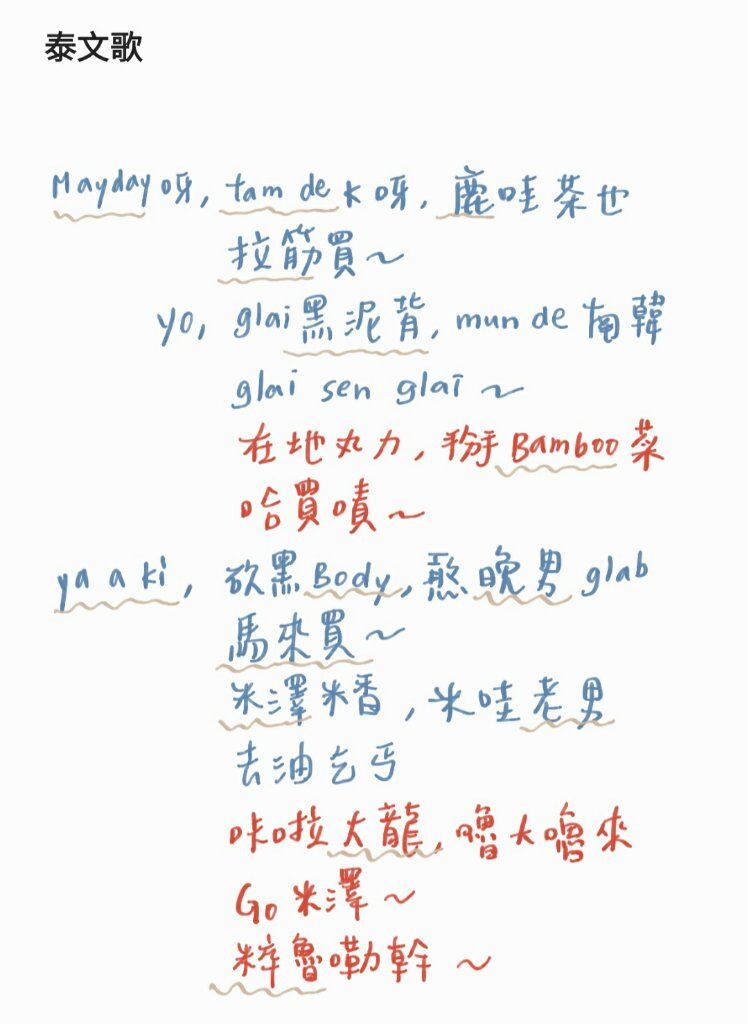 泰文歌
Mayday呀, tam de k 呀, 鹿哇茶也
拉筋買~
yo, glai黑泥背, mun de 南韓
glai sen glai ~
在地丸力, 掰手Bamboo菜
哈買嘖~
ya a ki, 欲黑Body, 憨晚男 glab
馬來買~
米澤米香, 米哇老男
去油乞丐
咔啦大龍, 嚕大嚕來
Go 米澤~
粹魯嘞幹 ~